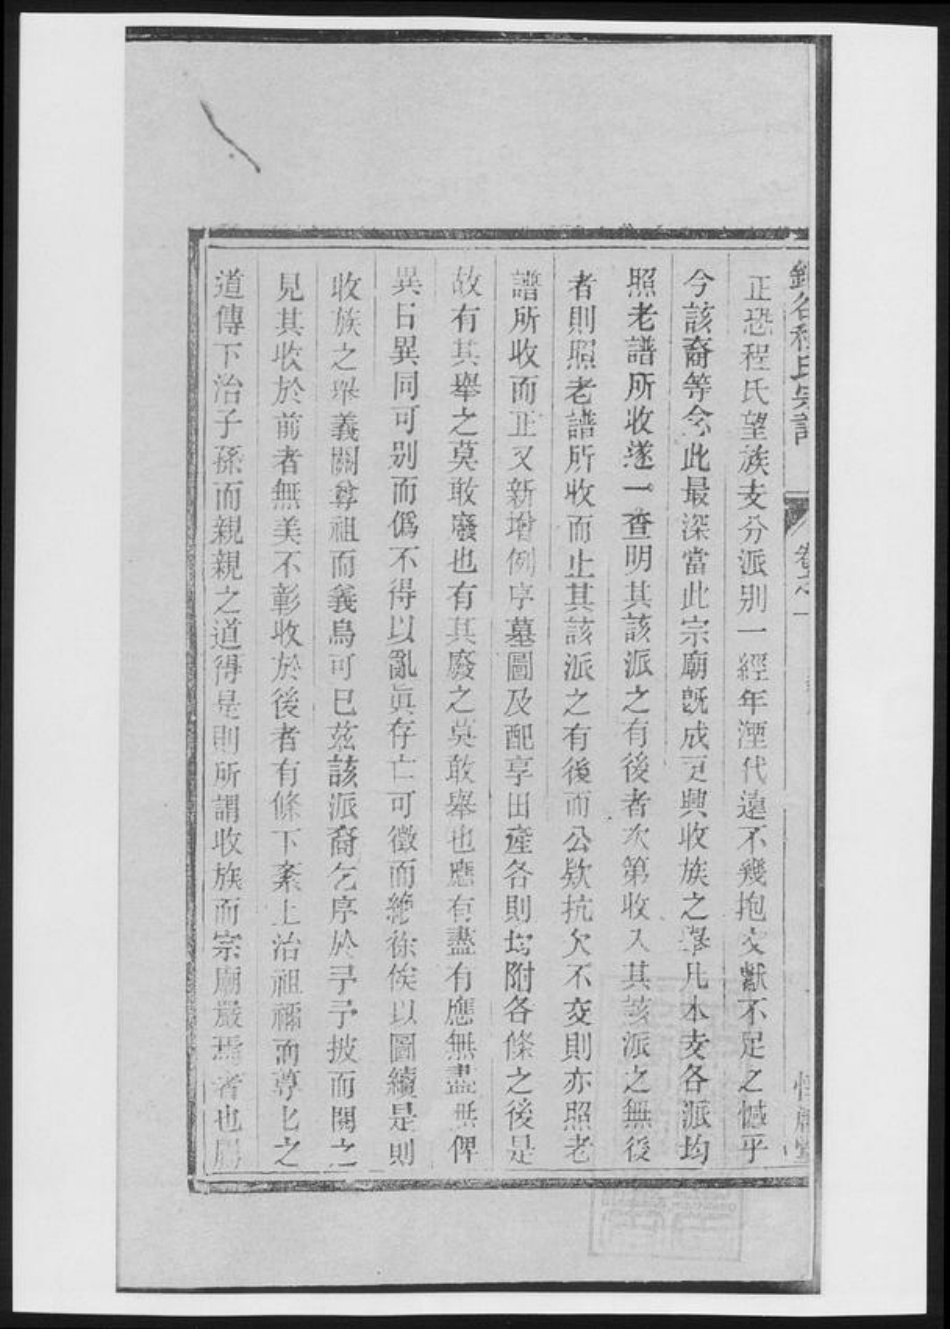 程氏宗譜
卷之一
正恐程氏望族支分派別一經年湮代遠不幾抱文獻不足之憾乎
今該裔等念此最深當此宗廟既成更興收族之舉凡本支各派均
照老譜所收遂一查明其該派之有後者次第收入其該派之無後
者則照老譜所收而止其該派之有後而公欵抗欠不交則亦照老
譜所收而正又新增例序墓圖及配享田產各則均附各條之後是
故有其舉之莫敢廢也有其廢之莫敢舉也應有盡有應無盡無俾
異日異同可別而僞不得以亂眞存亡可徵而絕徐俟以圖續是則
收族之舉義關尊祖而義烏可已茲該派裔乞序於予予披而閱之
見其收於前者無美不彰收於後者有條下紊上治祖禰而尊尊之
道傳下治子孫而親親之道得是則所謂收族而宗廟嚴焉者也